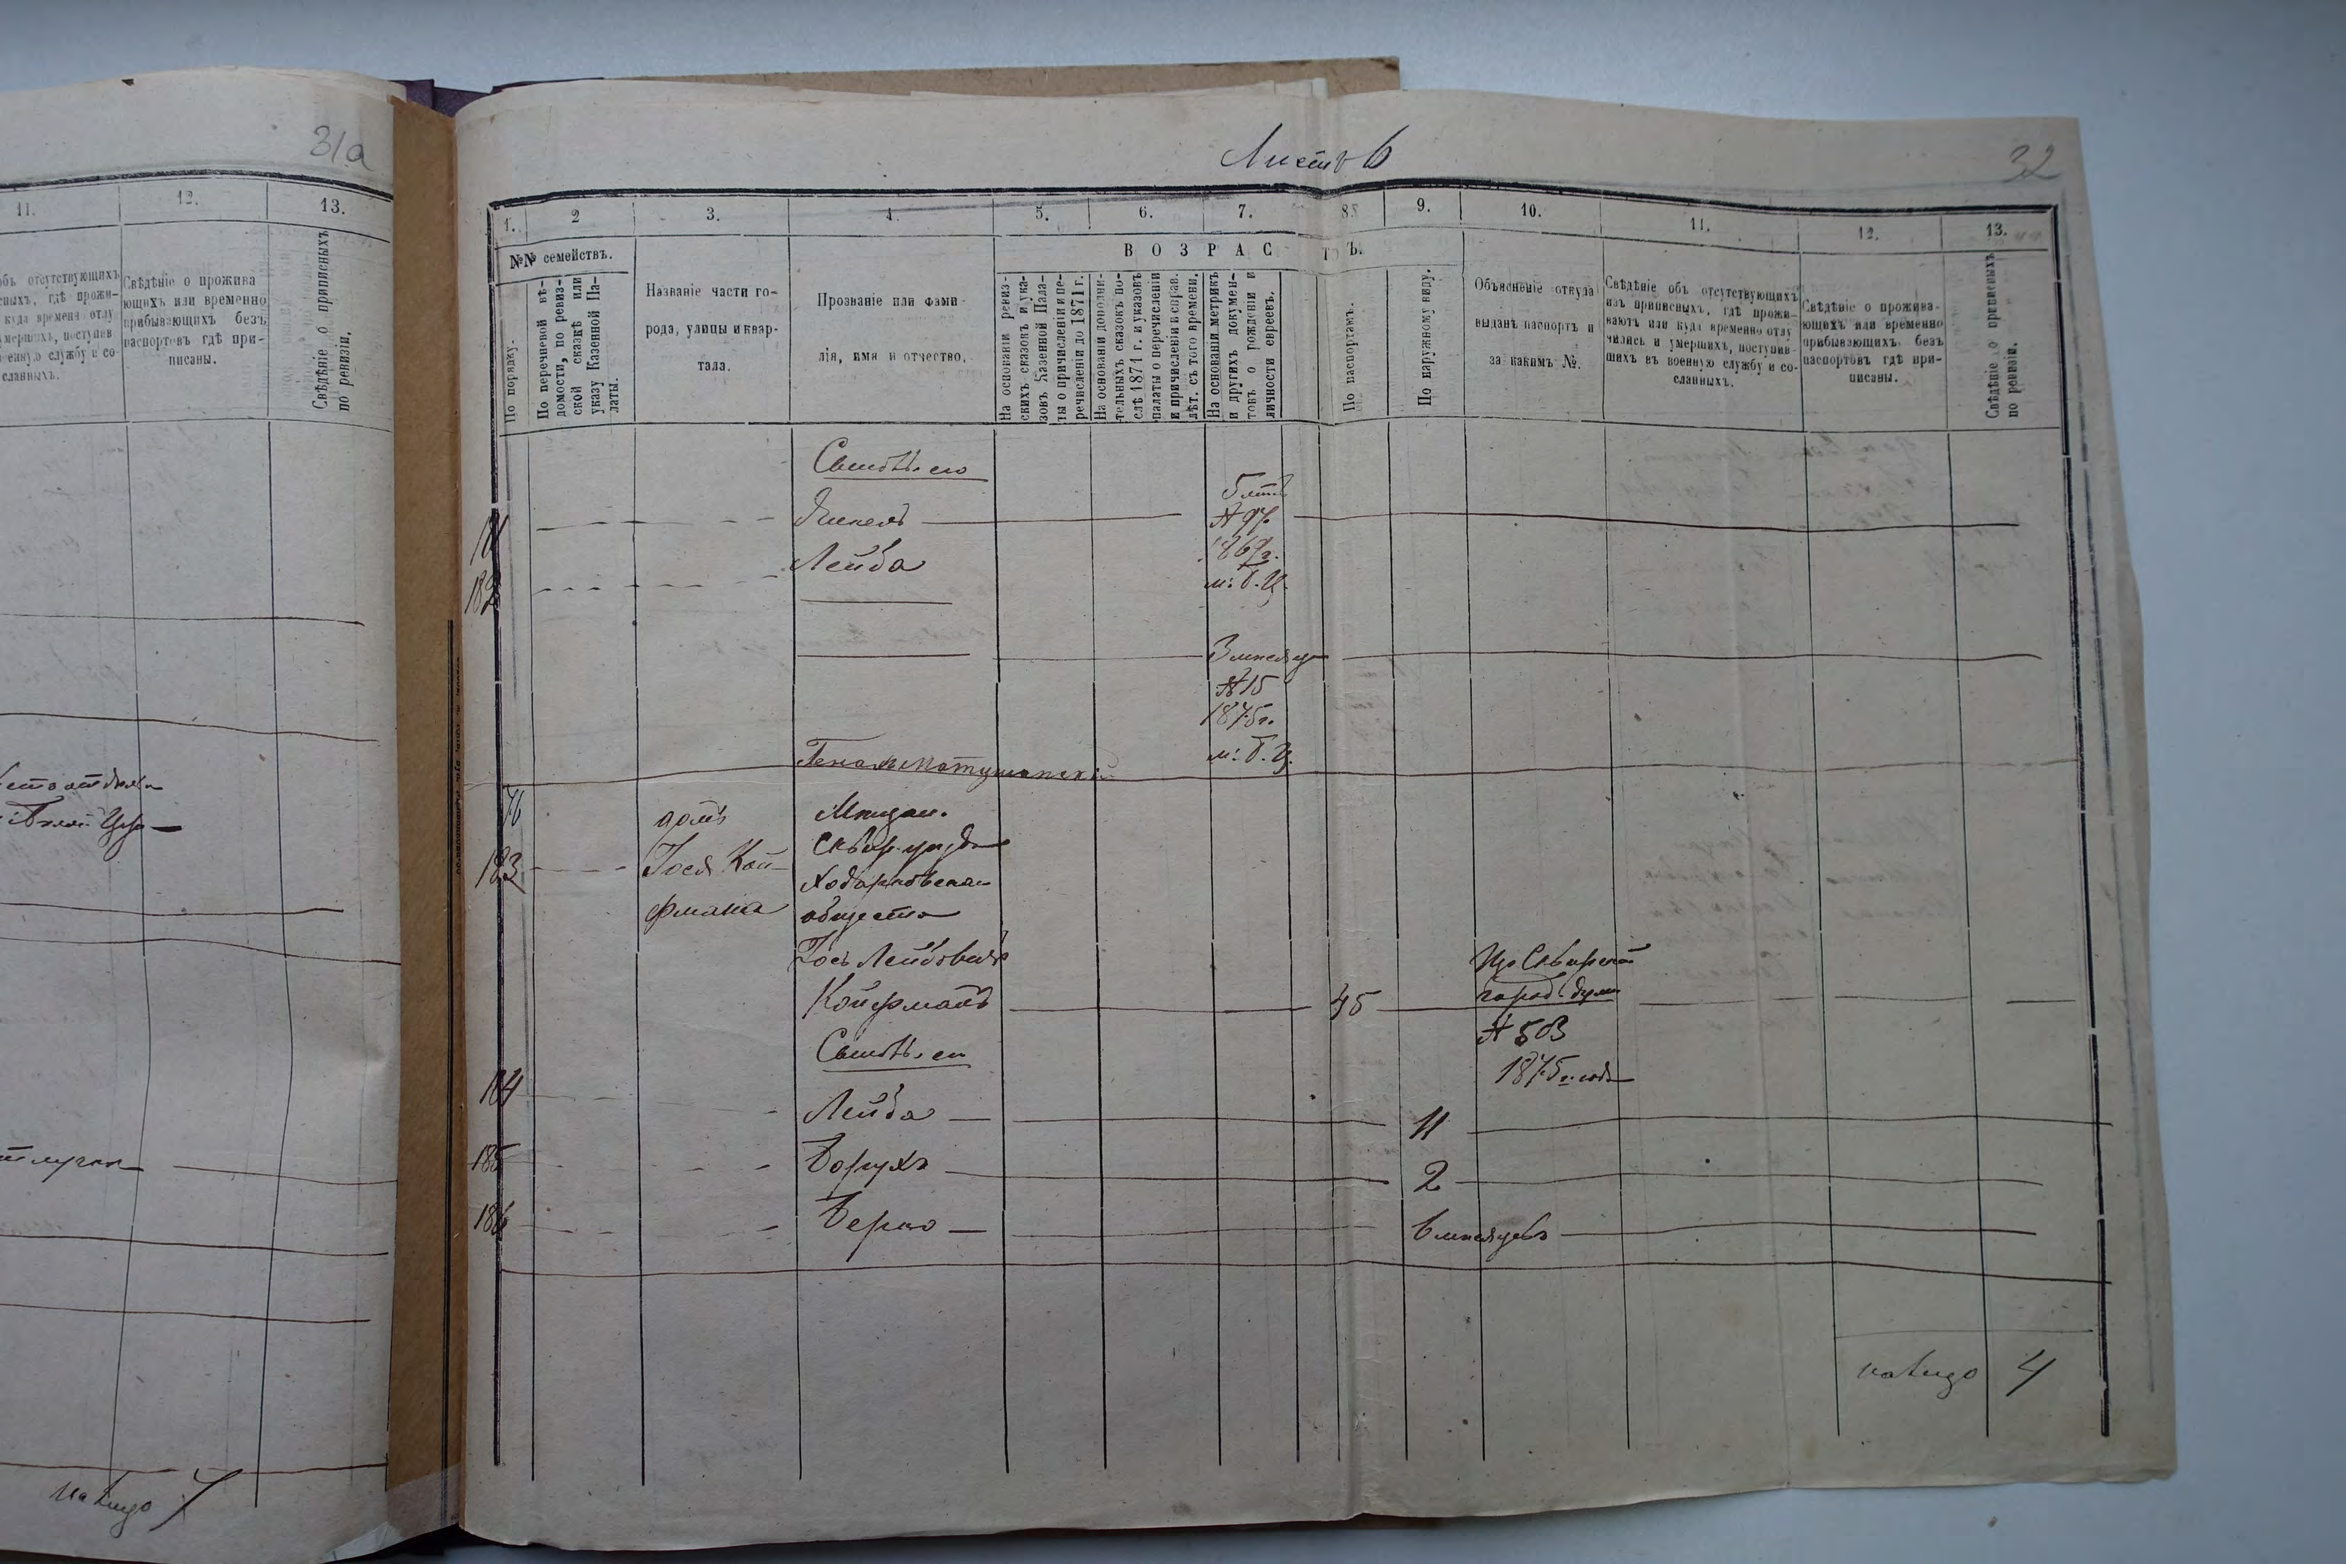 31а
11.
12.
13.
объ отсутствующихъ
сныхъ, гдѣ прожи-
куда временн отлу
умершихъ, поступив
военную службу и со-
сланныхъ.
Свѣдѣніе о прожива
ющихъ или временно
прибывающихъ безъ
паспортовъ гдѣ при-
писаны.
Свѣдѣніе о приписныхъ
по ревизіи.
на лицо 7
Листъ 6
32
1.
2
3.
4.
5.
6.
7.
8.
9.
10.
11.
12.
13.
№№ семействъ.
По порядку.
По перечневой вѣ-
домости, по ревиз-
ской сказкѣ или
указу Казенной Па-
латы.
Названіе части го-
рода, улицы и квар-
тала.
Прозваніе или фами-
лія, имя и отчество.
ВОЗРАСТЪ.
На основаніи ревиз-
скихъ сказокъ и ука-
зовъ Казенной Пала-
ты о причисленіи и пе-
речисленіи до 1871 г.
На основаніи дополни-
тельныхъ сказокъ по-
слѣ 1871 г. и указовъ
палаты о перечисленіи
и причисленіи и справ.
лѣт. съ того времени.
На основаніи метрикъ
и другихъ докумен-
товъ о рожденіи и
личности евреевъ.
По паспортамъ.
По наружному виду.
Объясненіе откуда
выданъ паспортъ и
за какимъ №.
Свѣдѣніе объ отсутствующихъ
изъ приписныхъ, гдѣ прожи-
ваютъ или куда временно отлу
чились и умершихъ, поступив-
шихъ въ военную службу и со-
сланныхъ.
Свѣдѣніе о прожива-
ющихъ или временно
прибывающихъ безъ
паспортовъ гдѣ при-
писаны.
Свѣдѣніе о приписныхъ
по ревизіи.
Сыновья его
5 лѣтъ
181
№ 97
Лейба
1869 г.
182
м: Б. Ц.
3 месяца
№ 15
1875 г.
м: Б. Ц.
76
домъ
Мещан.
Сквир. уезда
183
Іося Кой-
Ходорковскаго
фмана
общества
Іось Лейбовичъ
Изъ Сквирской
Койфманъ
45
город. думы
№ 503
Сыновья его
1875 года
184
Лейба
11
185
Борухъ
2
186
Берко
6 месяцевъ
на лицо 4